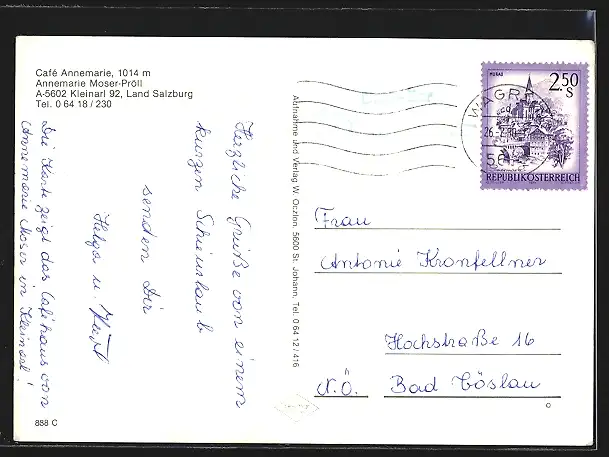 Café Annemarie, 1014 m
Annemarie Moser-Pröll
A-5602 Kleinarl 92, Land Salzburg
Tel. 0 64 18 / 230
Herzliche Grüße von einem
kurzen Schiurlaub
senden Dir
Helga u. Kurt
Die Karte zeigt das Cafehaus von
Annemarie Moser in Kleinarl!
888 C
Aufnahme und Verlag W. Oczlon, 5600 St. Johann, Tel. 0 64 12 / 416
MURAU
2.50
S
REPUBLIK ÖSTERREICH
WAGRA
26.-2.80
56
Frau
Antonie Kronfellner
Hochstraße 16
N.Ö. Bad Vöslau